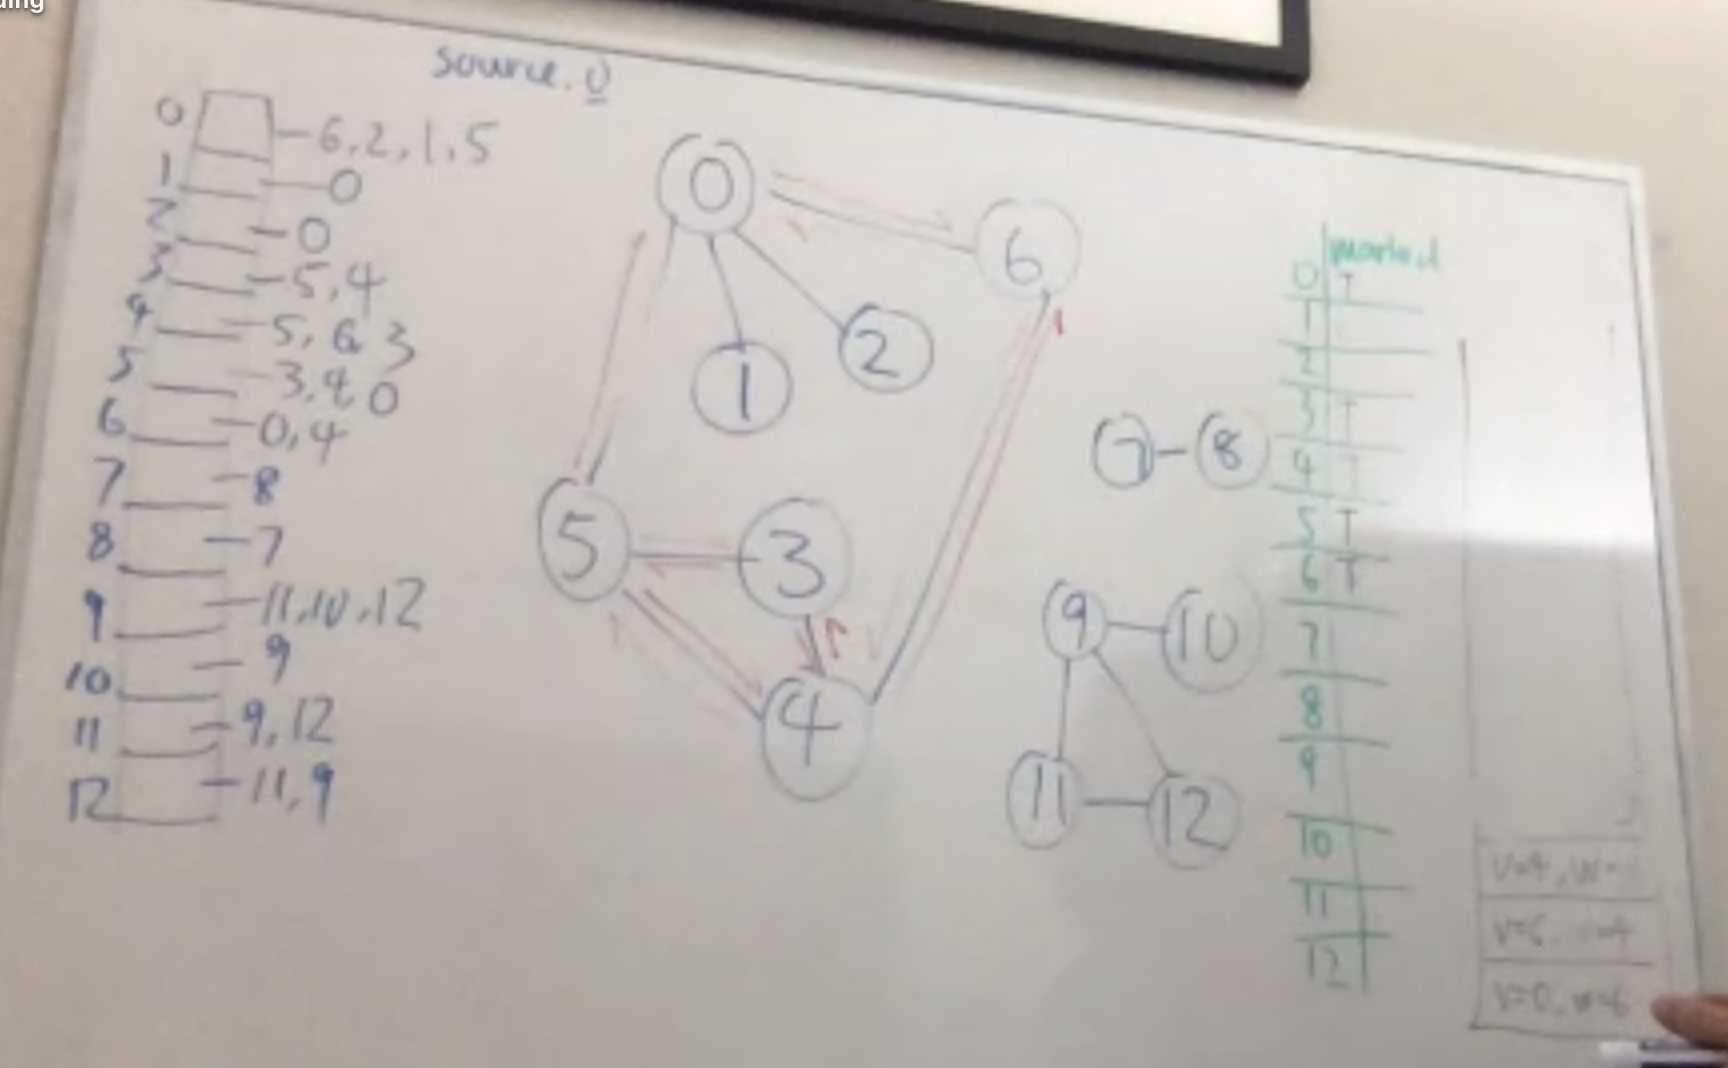 ding
source. 0
0 - 6, 2, 1, 5
1 - 0
2 - 0
3 - 5, 4
4 - 5, 6 3
5 - 3, 4, 0
6 - 0, 4
7 - 8
8 - 7
9 - 11, 10, 12
10 - 9
11 - 9, 12
12 - 11, 9
0
6
1
2
5
3
4
7 - 8
9
10
11
12
marked
0 T
1
2
3 T
4 T
5 T
6 T
7
8
9
10
11
12
v=4, w=
v=6, w=4
v=0, w=6